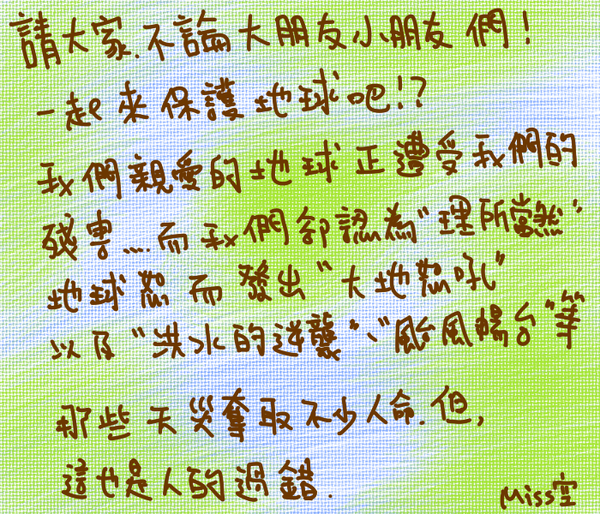 請大家.不論大朋友小朋友們!
一起來保護地球吧!?
我們親愛的地球正遭受我們的
殘害....而我們卻認為"理所當然"
地球怒而發出"大地怒吼"
以及"洪水的逆襲"、"颱風暢台"等
那些天災奪取不少人命.但,
這也是人的過錯.
Miss空